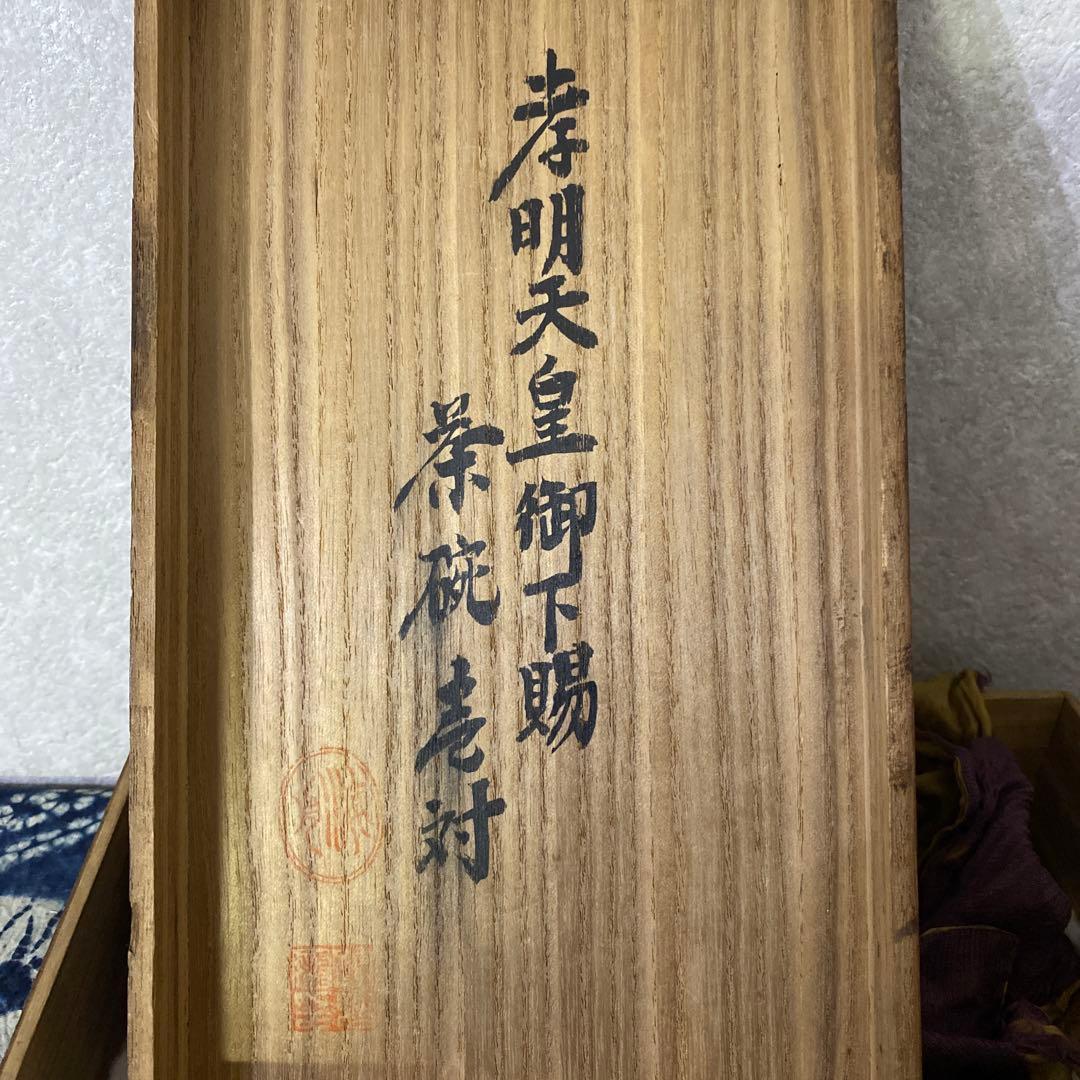 孝明天皇御下賜
茶碗壱対